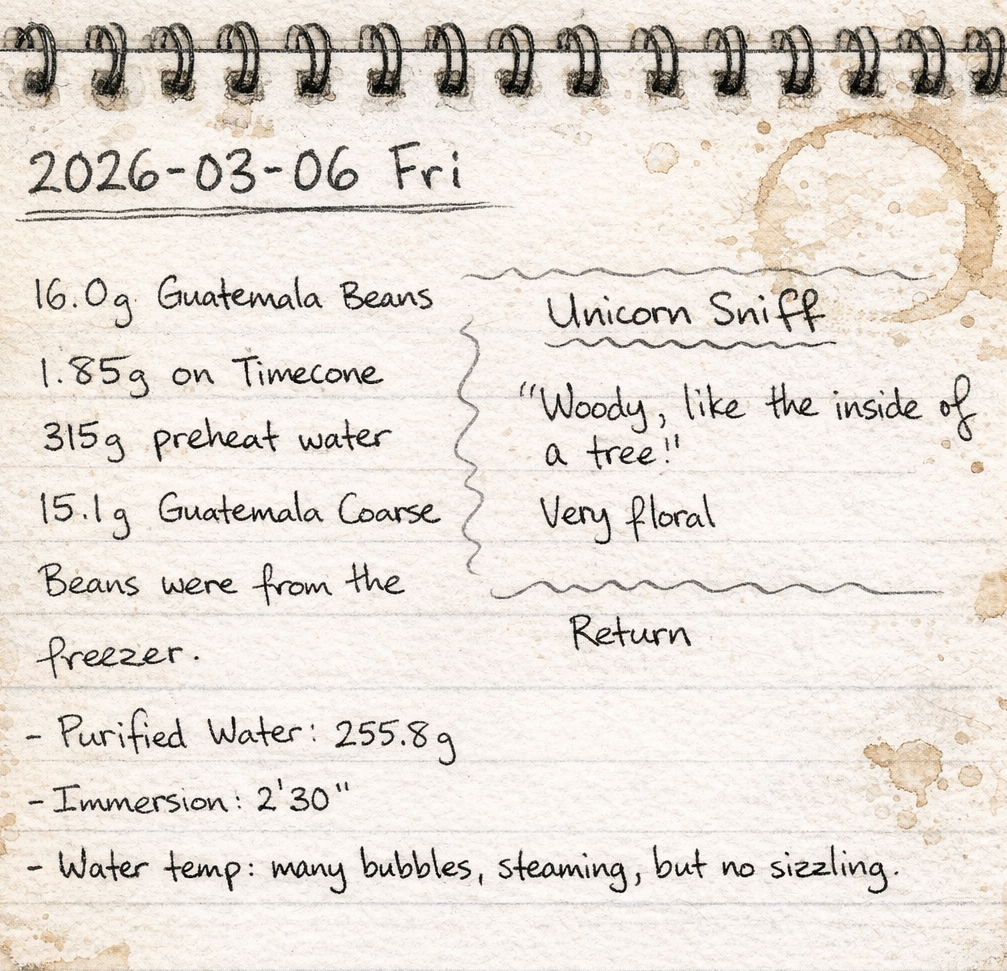 2026-03-06 Fri
16.0g Guatemala Beans
1.85g on Timecone
315g preheat water
15.1g Guatemala Coarse
Beans were from the
freezer.
Unicorn Sniff
"Woody, like the inside of
a tree!"
Very floral
Return
- Purified Water: 255.8g
- Immersion: 2'30"
- Water temp: many bubbles, steaming, but no sizzling.